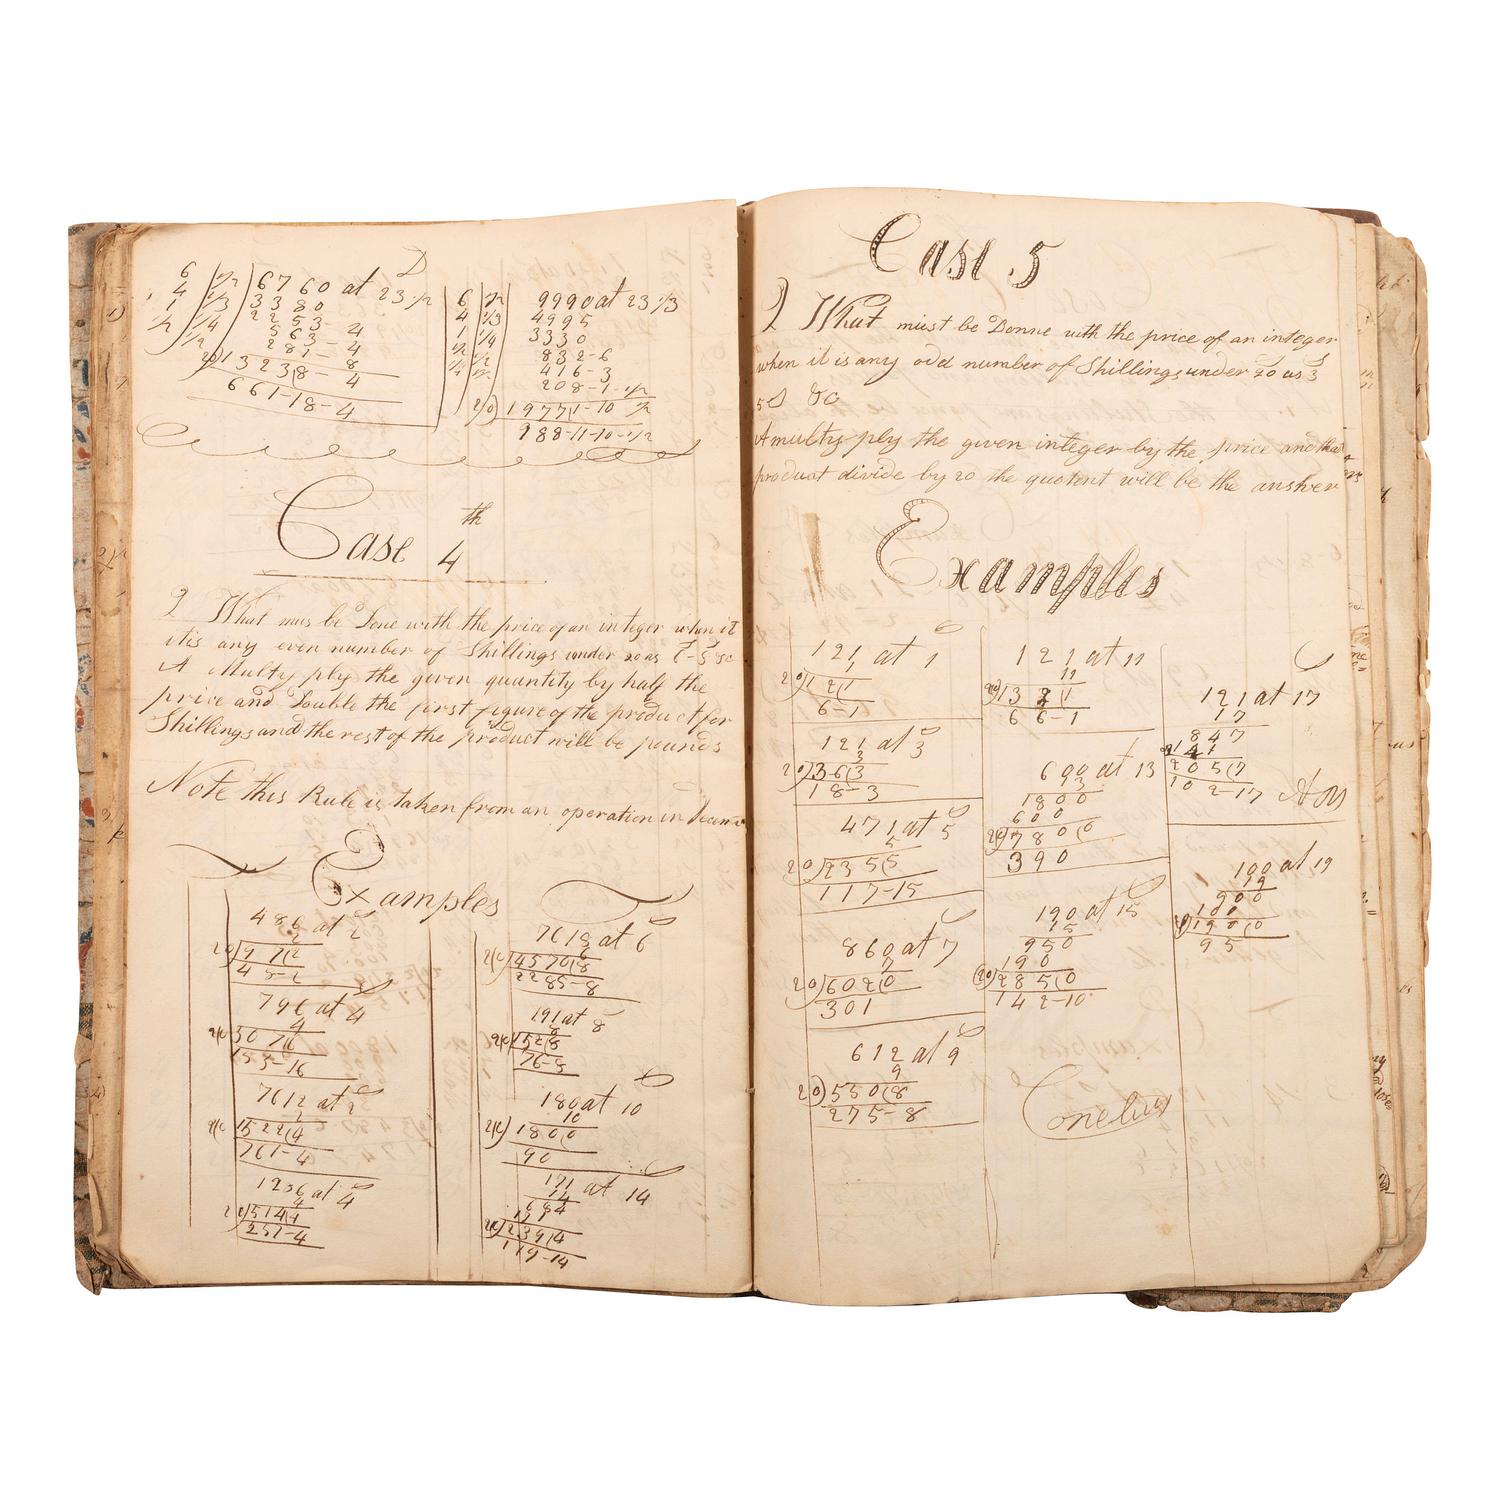 D
6 1/2 6760 at 23 1/2
4 1/3 3380
1 1/4 2253
1/2 1/2 563-4
281-8
20)13238-4
661-18-4
6 1/2 9990 at 23 1/3
4 1/3 4995
1 1/4 3330
1/2 1/2 832-6
416-3
208-1-1/2
20)1977(1-10 1/2
988-11-10-1/2
Case 4th
Q What mus be Done with the price of an integer when it
itis any even number of Shillings under 20 as
A Multy ply the given quantity by half the
price and Double the first figure of the product for
Shillings and the rest of the product will be pounds
Note this Rule is taken from an operation in
Examples
486 at 2
2
20)97(2
48-2
796 at 4
4
20)30 7(6
153-16
7612 at 2
2
20)1522(4
761-4
1236 at 4
4
20)514(4
257-4
7618 at 6
6
20)4570(8
2285-8
191 at 8
8
20)152(8
76-8
180 at 10
10
20)180(0
90
171 at 14
14
684
171
20)239(4
119-14
Case 5
Q What must be Donne with the price of an integer
when it is any odd number of Shillings under 20 as 3
5 S &c
A multy ply the given integer by the price and that
product divide by 20 the quotent will be the answer
Examples
121 at 1
1
20)12(1
6-1
121 at 3
3
20)36(3
18-3
471 at 5
5
20)235(5
117-15
860 at 7
7
20)602(0
301
612 at 9
9
20)550(8
275-8
121 at 11
11
20)132(1
66-1
600 at 13
13
1800
600
20)780(0
390
190 at 15
15
950
190
20)285(0
142-10
121 at 17
17
847
121
205(7
102-17 Ans
100 at 19
19
900
100
20)190(0
95
Conelius